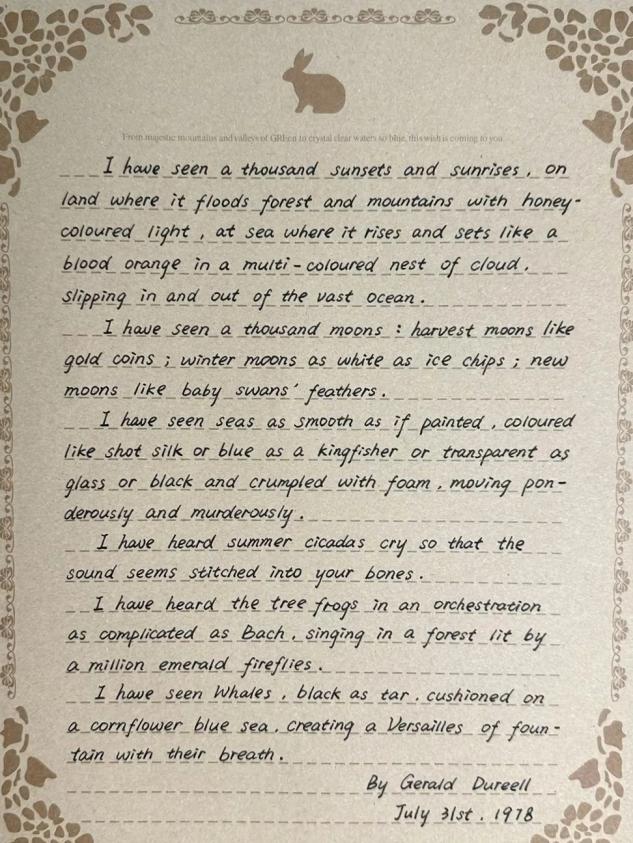 From majestic mountains and valleys of GREen to crystal clear waters so blue, this wish is coming to you.
I have seen a thousand sunsets and sunrises, on
land where it floods forest and mountains with honey-
coloured light, at sea where it rises and sets like a
blood orange in a multi-coloured nest of cloud,
slipping in and out of the vast ocean.
I have seen a thousand moons : harvest moons like
gold coins ; winter moons as white as ice chips ; new
moons like baby swans' feathers.
I have seen seas as smooth as if painted, coloured
like shot silk or blue as a kingfisher or transparent as
glass or black and crumpled with foam, moving pon-
derously and murderously.
I have heard summer cicadas cry so that the
sound seems stitched into your bones.
I have heard the tree frogs in an orchestration
as complicated as Bach, singing in a forest lit by
a million emerald fireflies.
I have seen Whales, black as tar, cushioned on
a cornflower blue sea, creating a Versailles of foun-
tain with their breath.
By Gerald Dureell
July 31st, 1978